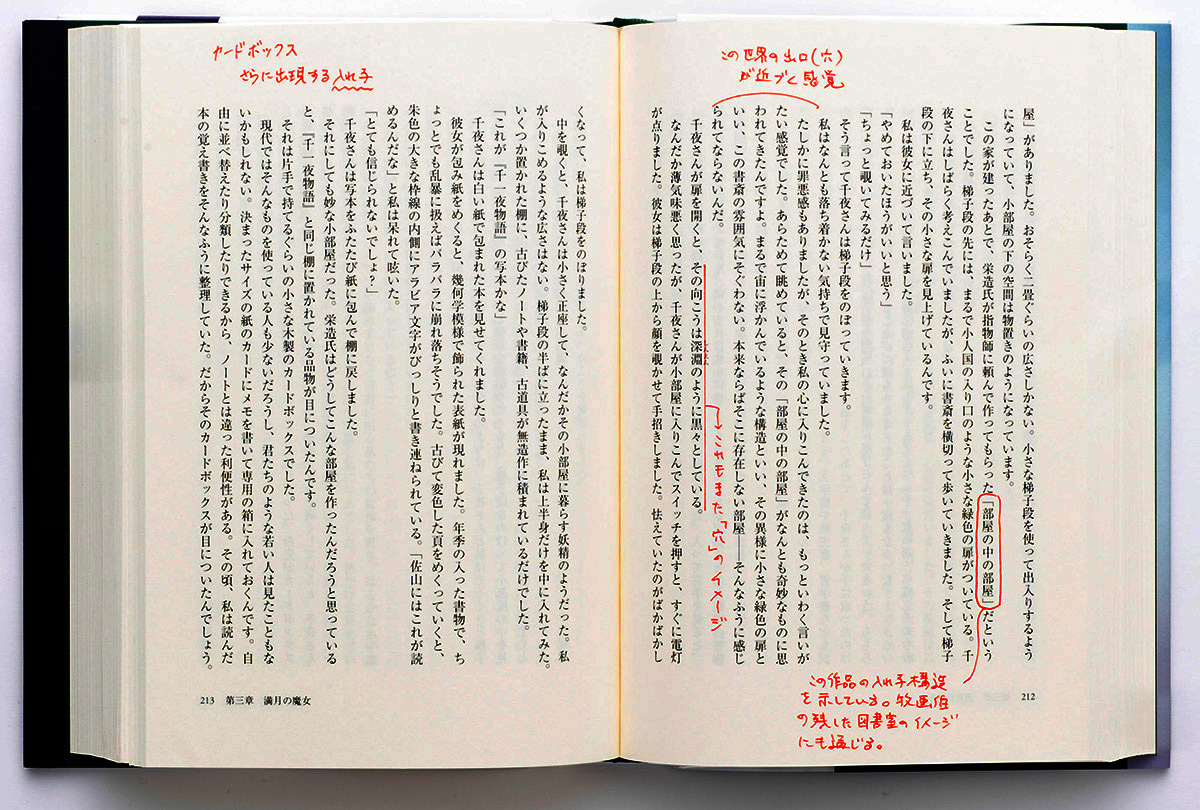 この世界の出口(穴)
が近づく感覚
屋」がありました。おそらく二畳ぐらいの広さしかない。小さな梯子段を使って出入りするよう
になっていて、小部屋の下の空間は物置きのようになっています。
この家が建ったあとで、栄造氏が指物師に頼んで作ってもらった「部屋の中の部屋」だという
ことでした。梯子段の先には、まるで小人国の入り口のような小さな緑色の扉がついている。千
夜さんはしばらく考えこんでいましたが、ふいに書斎を横切って歩いていきました。そして梯子
段の下に立ち、その小さな扉を見上げているんです。
私は彼女に近づいて言いました。
「やめておいたほうがいいと思う」
「ちょっと覗いてみるだけ」
そう言って千夜さんは梯子段をのぼっていきます。
私はなんとも落ち着かない気持ちで見守っていました。
たしかに罪悪感もありましたが、そのとき私の心に入りこんできたのは、もっといわく言いが
たい感覚でした。あらためて眺めていると、その「部屋の中の部屋」がなんとも奇妙なものに思
われてきたんですよ。まるで宙に浮かんでいるような構造といい、その異様に小さな緑色の扉と
いい、この書斎の雰囲気にそぐわない。本来ならばそこに存在しない部屋――そんなふうに感じ
られてならないんだ。
千夜さんが扉を開くと、その向こうは深淵のように黒々としている。
なんだか薄気味悪く思ったが、千夜さんが小部屋に入りこんでスイッチを押すと、すぐに電灯
が点りました。彼女は梯子段の上から顔を覗かせて手招きしました。怯えていたのがばかばかし
→これもまた「穴」のイメージ
この作品の入れ子構造
を示している。牧画伯
の残した図書室のイメージ
にも通じる。
212
カードボックス
さらに出現する入れ子
くなって、私は梯子段をのぼりました。
中を覗くと、千夜さんは小さく正座して、なんだかその小部屋に暮らす妖精のようだった。私
が入りこめるような広さはない。梯子段の半ばに立ったまま、私は上半身だけを中に入れてみた。
いくつか置かれた棚に、古びたノートや書籍、古道具が無造作に積まれているだけでした。
「これが『千一夜物語』の写本かな」
千夜さんは白い紙で包まれた本を見せてくれました。
彼女が包み紙をめくると、幾何学模様で飾られた表紙が現れました。年季の入った書物で、ち
ょっとでも乱暴に扱えばバラバラに崩れ落ちそうでした。古びて変色した頁をめくっていくと、
朱色の大きな枠線の内側にアラビア文字がびっしりと書き連ねられている。「佐山にはこれが読
めるんだな」と私は呆れて呟いた。
「とても信じられないでしょ?」
千夜さんは写本をふたたび紙に包んで棚に戻しました。
それにしても妙な小部屋だった。栄造氏はどうしてこんな部屋を作ったんだろうと思っている
と、『千一夜物語』と同じ棚に置かれている品物が目についたんです。
それは片手で持てるぐらいの小さな木製のカードボックスでした。
現代ではそんなものを使っている人も少ないだろうし、君たちのような若い人は見たこともな
いかもしれない。決まったサイズの紙のカードにメモを書いて専用の箱に入れておくんです。自
由に並べ替えたり分類したりできるから、ノートとは違った利便性がある。その頃、私は読んだ
本の覚え書きをそんなふうに整理していた。だからそのカードボックスが目についたんでしょう。
213 第三章 満月の魔女